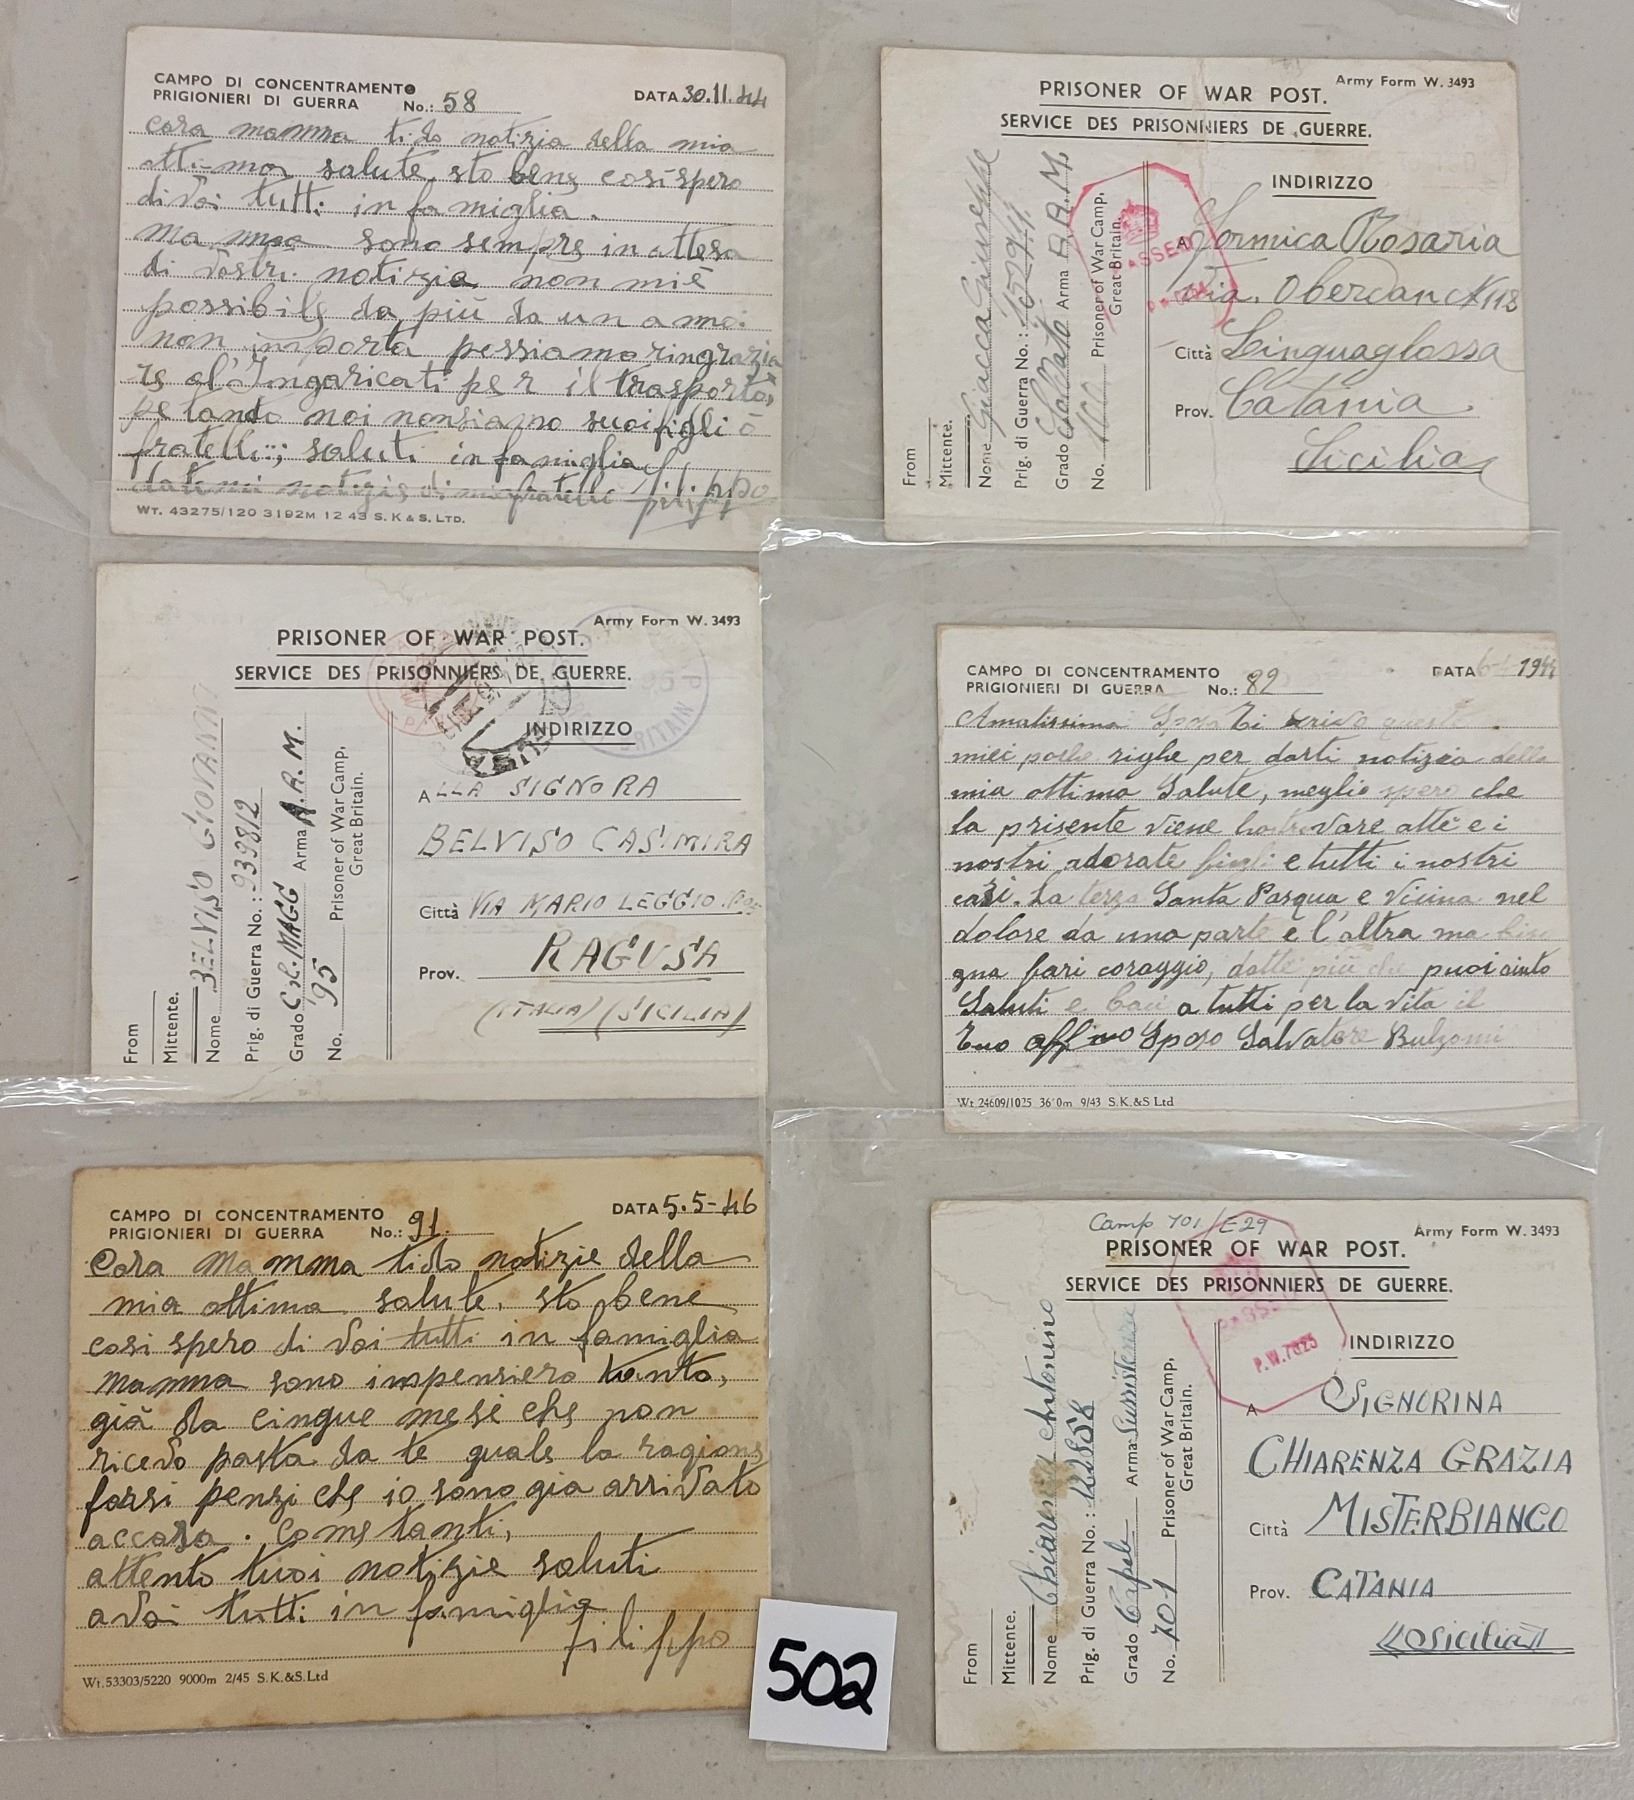 CAMPO DI CONCENTRAMENTO
PRIGIONIERI DI GUERRA No.: 58 DATA 30.11.44
cara mamma ti do notizia della mia
ottima salute sto bene cosi spero
di voi tutti in famiglia.
mamma sono sempre in attesa
di vostri notizia non mi è
possibile da più da un anno
non importa possiamo ringrazia
re al'Ingaricati per il trasporto,
pe tando noi non siamo suoi figli ò
fratelli; saluti in famiglia
datemi notizie di mio fratello filippo
WT. 43275/120 3192M 12 43 S.K & S. LTD.
Army Form W. 3493
PRISONER OF WAR POST.
SERVICE DES PRISONNIERS DE GUERRE.
INDIRIZZO
A Formica Rosaria
Via. Oberdan N 118
Città Linguaglossa
Prov. Catania
Sicilia
From
Mittente.
Nome Giuseppe
Prig. di Guerra No.:
Grado Soldato Arma A.A.M.
No. 100 Prisoner of War Camp,
Great Britain.
PASSED
Army Form W. 3493
PRISONER OF WAR POST.
SERVICE DES PRISONNIERS DE GUERRE.
INDIRIZZO
ALLA SIGNORA
BELVISO CASIMIRA
Città VIA MARIO LEGGIO
Prov. RAGUSA
(ITALIA) (SICILIA)
From
Mittente.
Nome BELVISO GIOVANNI
Prig. di Guerra No.: 939812
Grado C.le. MAGG Arma A.R.M.
No. 95 Prisoner of War Camp,
Great Britain.
CAMPO DI CONCENTRAMENTO
PRIGIONIERI DI GUERRA No.: 82 DATA 1944
Amatissima Sposa Ti scrivo queste
miei poche righe per darti notizia della
mia ottima Salute, meglio spero che
la prisente viene ha trovare atte e i
nostri adorate figli e tutti i nostri
cari. La terza Santa Pasqua e vicina nel
dolore da una parte e l'altra ma biso
gna fari coraggio, datte più che puoi aiuto
Saluti e baci a tutti per la vita il
Tuo affmo Sposo Salvatore Bulzomi
Wt 24609/1025 36 0m 9/43 S.K.&S Ltd
CAMPO DI CONCENTRAMENTO
PRIGIONIERI DI GUERRA No.: 91. DATA 5.5-46
Cara Mamma ti do notizie della
mia ottima salute, sto bene
cosi spero di voi tutti in famiglia
Mamma sono inpensiero tanto,
già da cinque mesi che non
ricevo posta da te quale la ragione
forsi penzi che io sono gia arrivato
accasa. Come tanti,
attento tuoi notizie saluti
a voi tutti in famiglia
filippo
Wt.53303/5220 9000m 2/45 S.K.&S.Ltd
502
Camp 701/E29
Army Form W. 3493
PRISONER OF WAR POST.
SERVICE DES PRISONNIERS DE GUERRE.
P.W.7025
INDIRIZZO
A SIGNORINA
CHIARENZA GRAZIA
Città MISTERBIANCO
Prov. CATANIA
Sicilia
From
Mittente.
Nome Chiarenza Antonino
Prig. di Guerra No.:
Grado Capole Arma Sussistenza
No. 701 Prisoner of War Camp,
Great Britain.